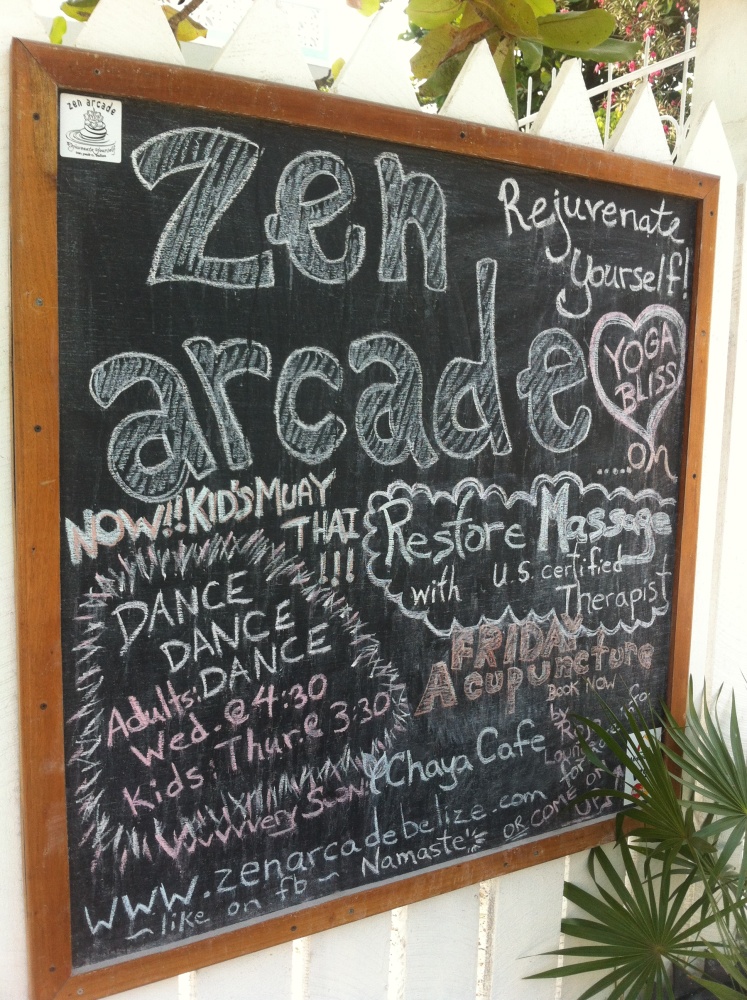 zen arcade
Rejuvenate Yourself
Zen
arcade
Rejuvenate
Yourself!
YOGA
BLISS
.....on
NOW!! KID'S MUAY
THAI
!!!
Restore Massage
with U.S. certified
Therapist
DANCE
DANCE
DANCE
Adults:
Wed. @ 4:30
Kids: Thur. @ 3:30
FRIDAY
Acupuncture
BOOK NOW
by
for
Chaya Cafe
OR COME ON
UP
www.zenarcadebelize.com
~ like on fb ~ Namaste